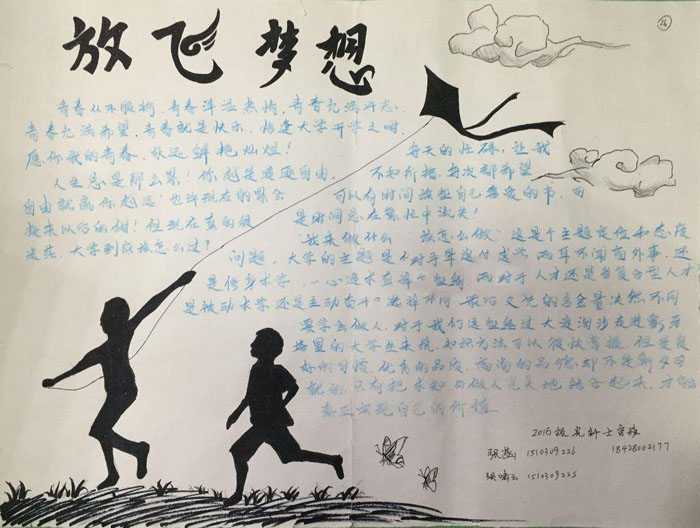 放飞梦想
26
青春从不服输,青春洋溢热情,青春充满斗志,
青春充满希望,青春就是快乐,恰逢大学开学之时,
愿你我的青春,永远鲜艳灿烂!
每天的忙碌,让我
人生总是那么累!你越是追逐自由,
不知所措,每次都希望
自由就离你越远!也许现在的累会
可以有时间放在自己喜爱的书,可
换来以后的甜!但现在真的很
是时间总在繁忙中流失!
迷茫,大学到底该怎么过?
"我来做什么""该怎么做"这是个主题定位和态度
问题,大学的主题是
两耳不闻窗外事,还
是修身求学,一心追求真
而对于人才还是当复合型人才
是被动求学还是主动奋斗?选择不同,最后
的含金量决然不同
要学会做人,对于我们这些经过大浪淘沙走进象牙
塔里的大学生来说,知识方法可以很快掌握,但是良
好的习惯,优秀的品质,高尚的品德,却不是朝夕可
就的,只有把求知与做人完美地结合起来,才能
真正实现自己的价值.
2015级
15103091226
18428002177
1510309225